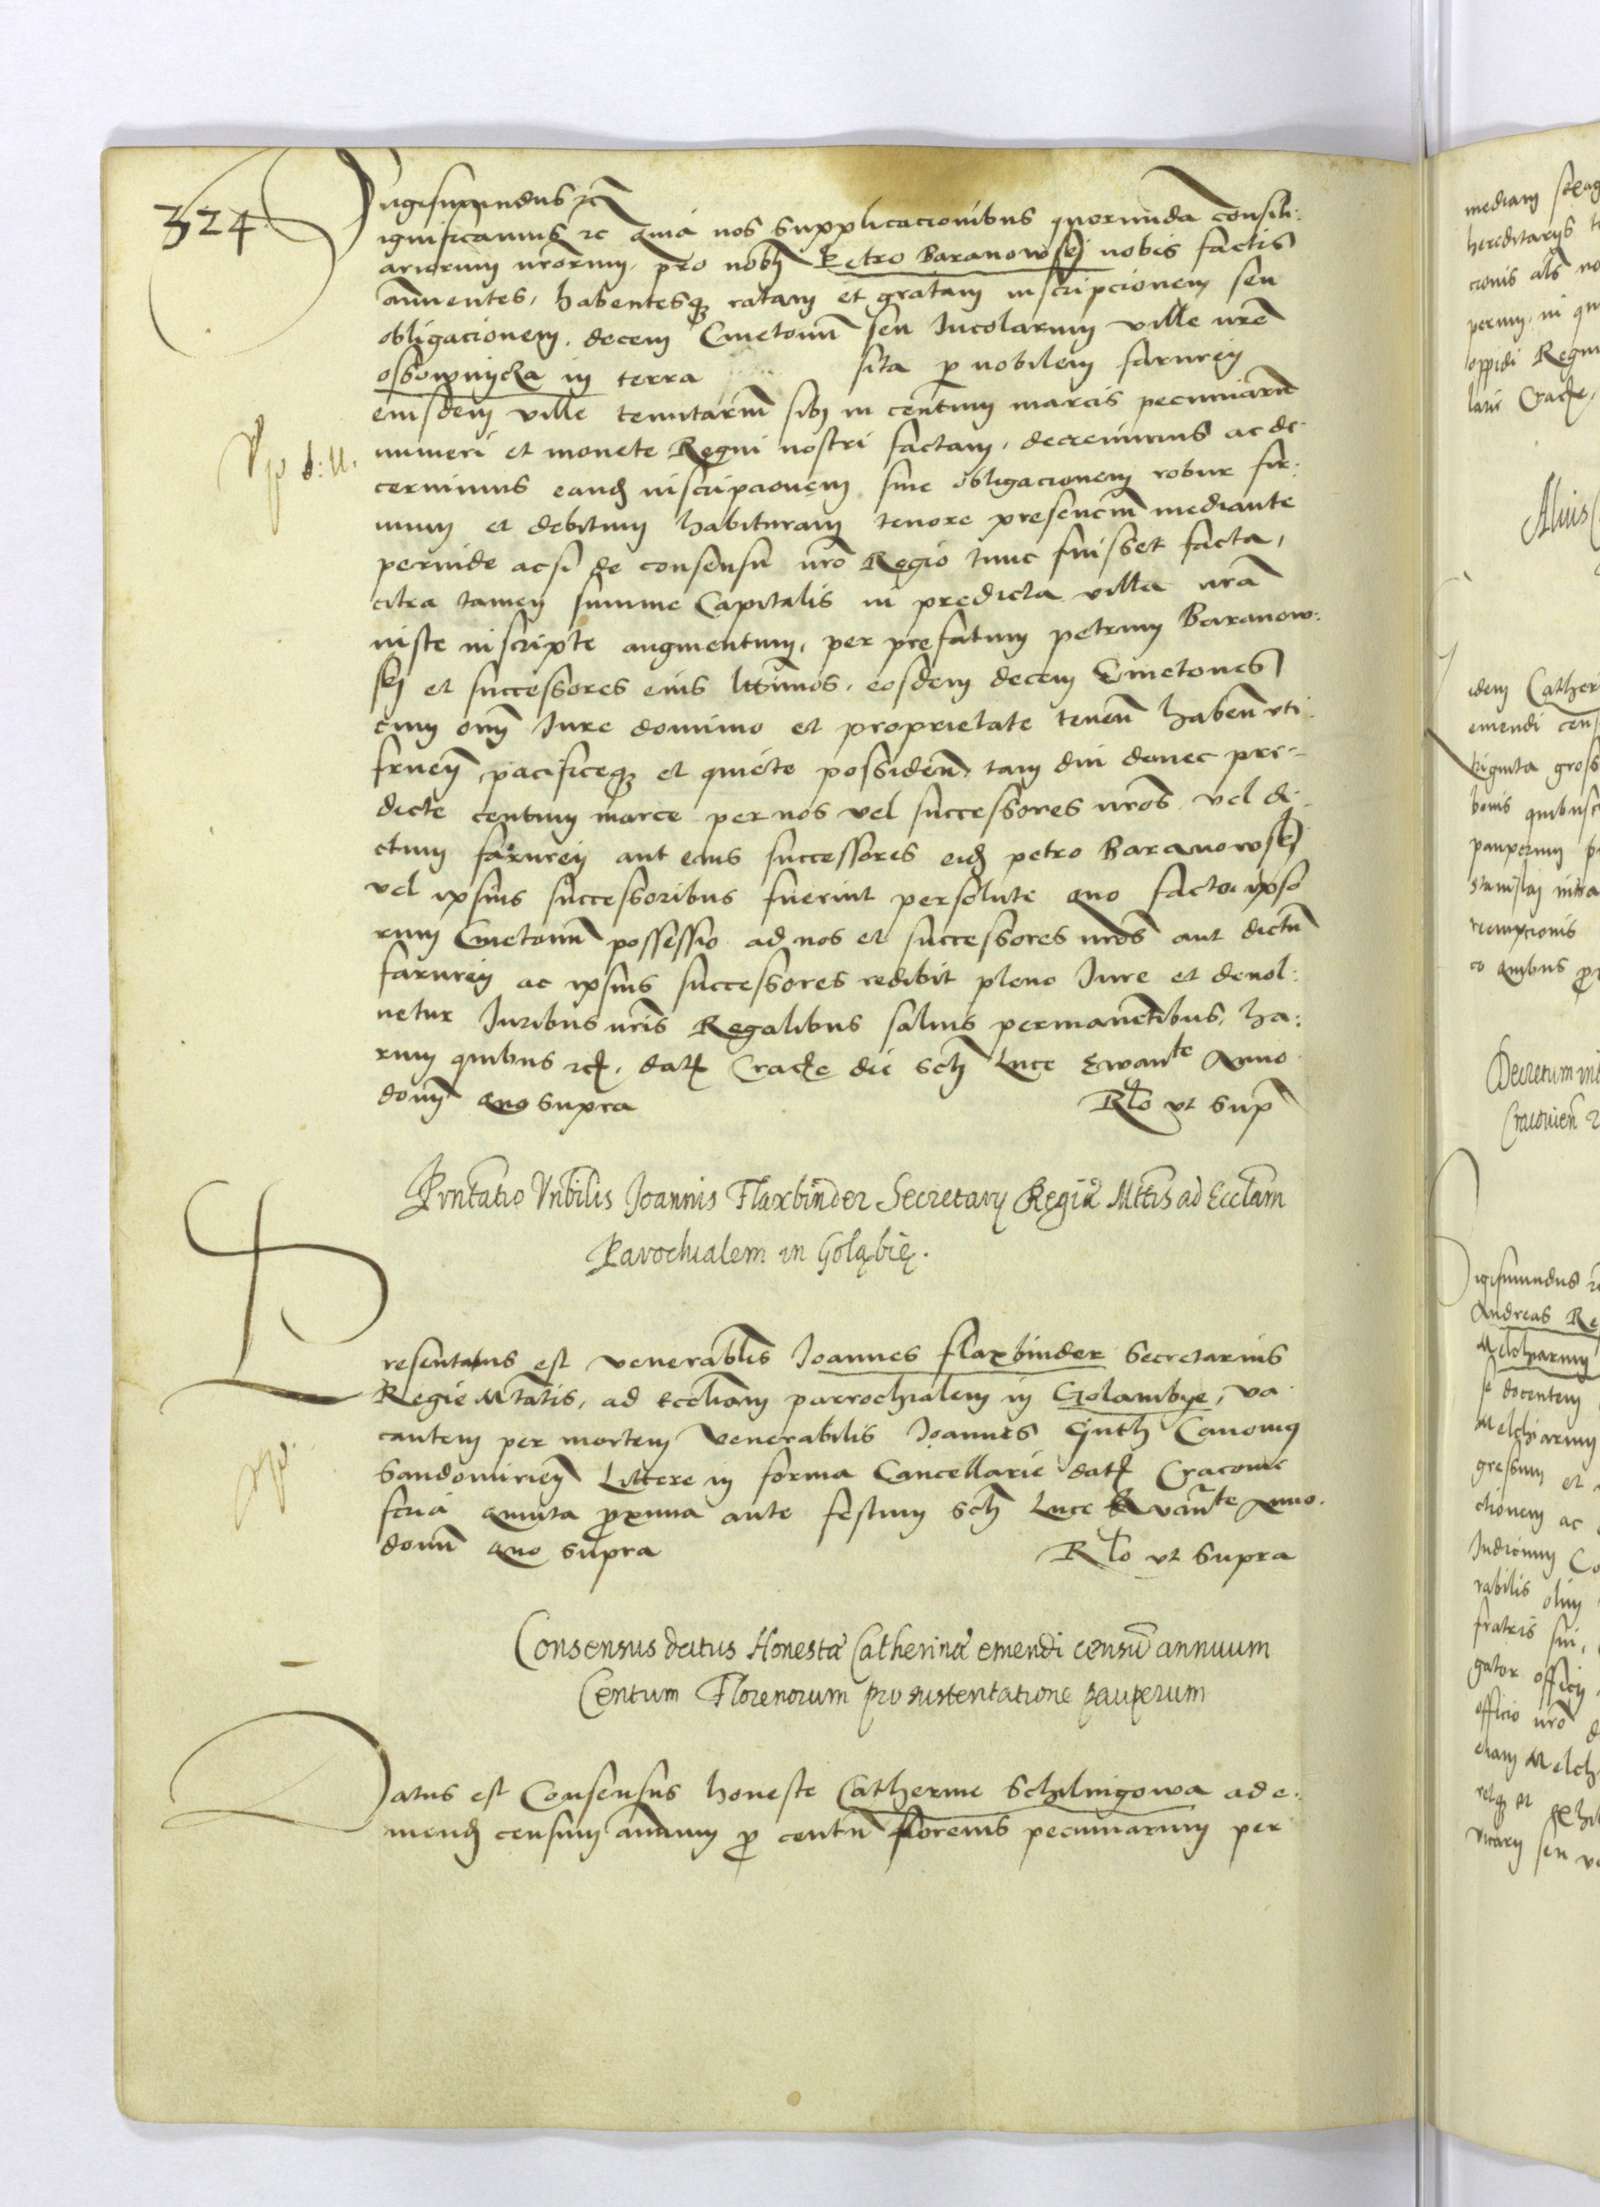 324
Sigismundus etc
ignificamus etc Quia nos supplicacionibus quorunda consili:
ariorum nrorum, pro nobi Petro Baranowskj nobis factis
annuentes, habentesq ratam et gratam inscripcionem seu
obligacionem, decem Cmetonu seu Incolarum ville nre
ossownyczka in terra sita p nobilem farurej
eiusdem ville tenutariu sibj in centum marcis pecuniaru
numeri et monete Regni nostri factam, decreuimus ac de
cernimus eand inscripcionem siue obligacionem robur fir:
mum et debitum habituram tenore presencium mediante
perinde acsi de consensu nro Regio tunc fuisset facta,
citra tamen summe Capitalis in predicta villa nra
iuste inscripte augmentum, per prefatum petrum Baranow:
skj et successores eius ltimos, eosdem decem Cmetones
cum omj Iure dominio et proprietate tenen haben uti
fruen, pacificeq et quiete possiden, tam diu donec pre-
dicte centum marce per nos vel successores nros vel di-
ctum farurej aut eius successores eid petro Baranowskj
vel ipsius successoribus fuerint persolute quo facto ipso
rum Cmetonu possessio ad nos et successores nros aut dictu
farurej ac ipsius successores redibit pleno Iure et deuol:
uetur Iuribus nris Regalibus saluis permanentibus, ha:
rum quibus etc, dat Crace die Scti Luce Ewante Anno
domj quo supra Rlo ut sup
Pntatio Vnbilis Joannis Flaxbinder Secretarij Regiæ Mttis ad Ecclam
Parochialem in Goląbię.
Presentatus est venerablis Joannes flaxbinder Secretarius
Regie Mtatis, ad Eccliam parrochialem in Golambye, va
cantem per mortem Venerabilis Joannes Guth Canonici
Sandomirien Littere in forma Cancellarie dat Cracouie
feria quinta pxima ante festum Scti Luce Evante Anno
domi quo supra Rlo ut supra
Consensus datus Honestæ Catherinæ emendi censu annuum
Centum Florenorum pro sustentatione pauperum
Datus est Consensus honeste Catherine Schilingowa ad e:
mend censum annuum p centu florenis pecuniarum per
mediam sexag
hereditarijs
cionis als no
perum, in qu
oppidi Regni
latis Crace,
Alius
idem Cather
emendi cens
triginta gross
bonis quibusc
pauperum
Stanislaj intra
reempcionis
co quibus pr
Decretum int
Cracouien
Sigismundus
Andreas Re
Melchiarum
se docentem
Melchiarum
gressum et
ctionem ac
Iudicium Co
rabilis olim
fratris sui,
gator officij
officio nro
eciam Melch
retq et
vicarij seu